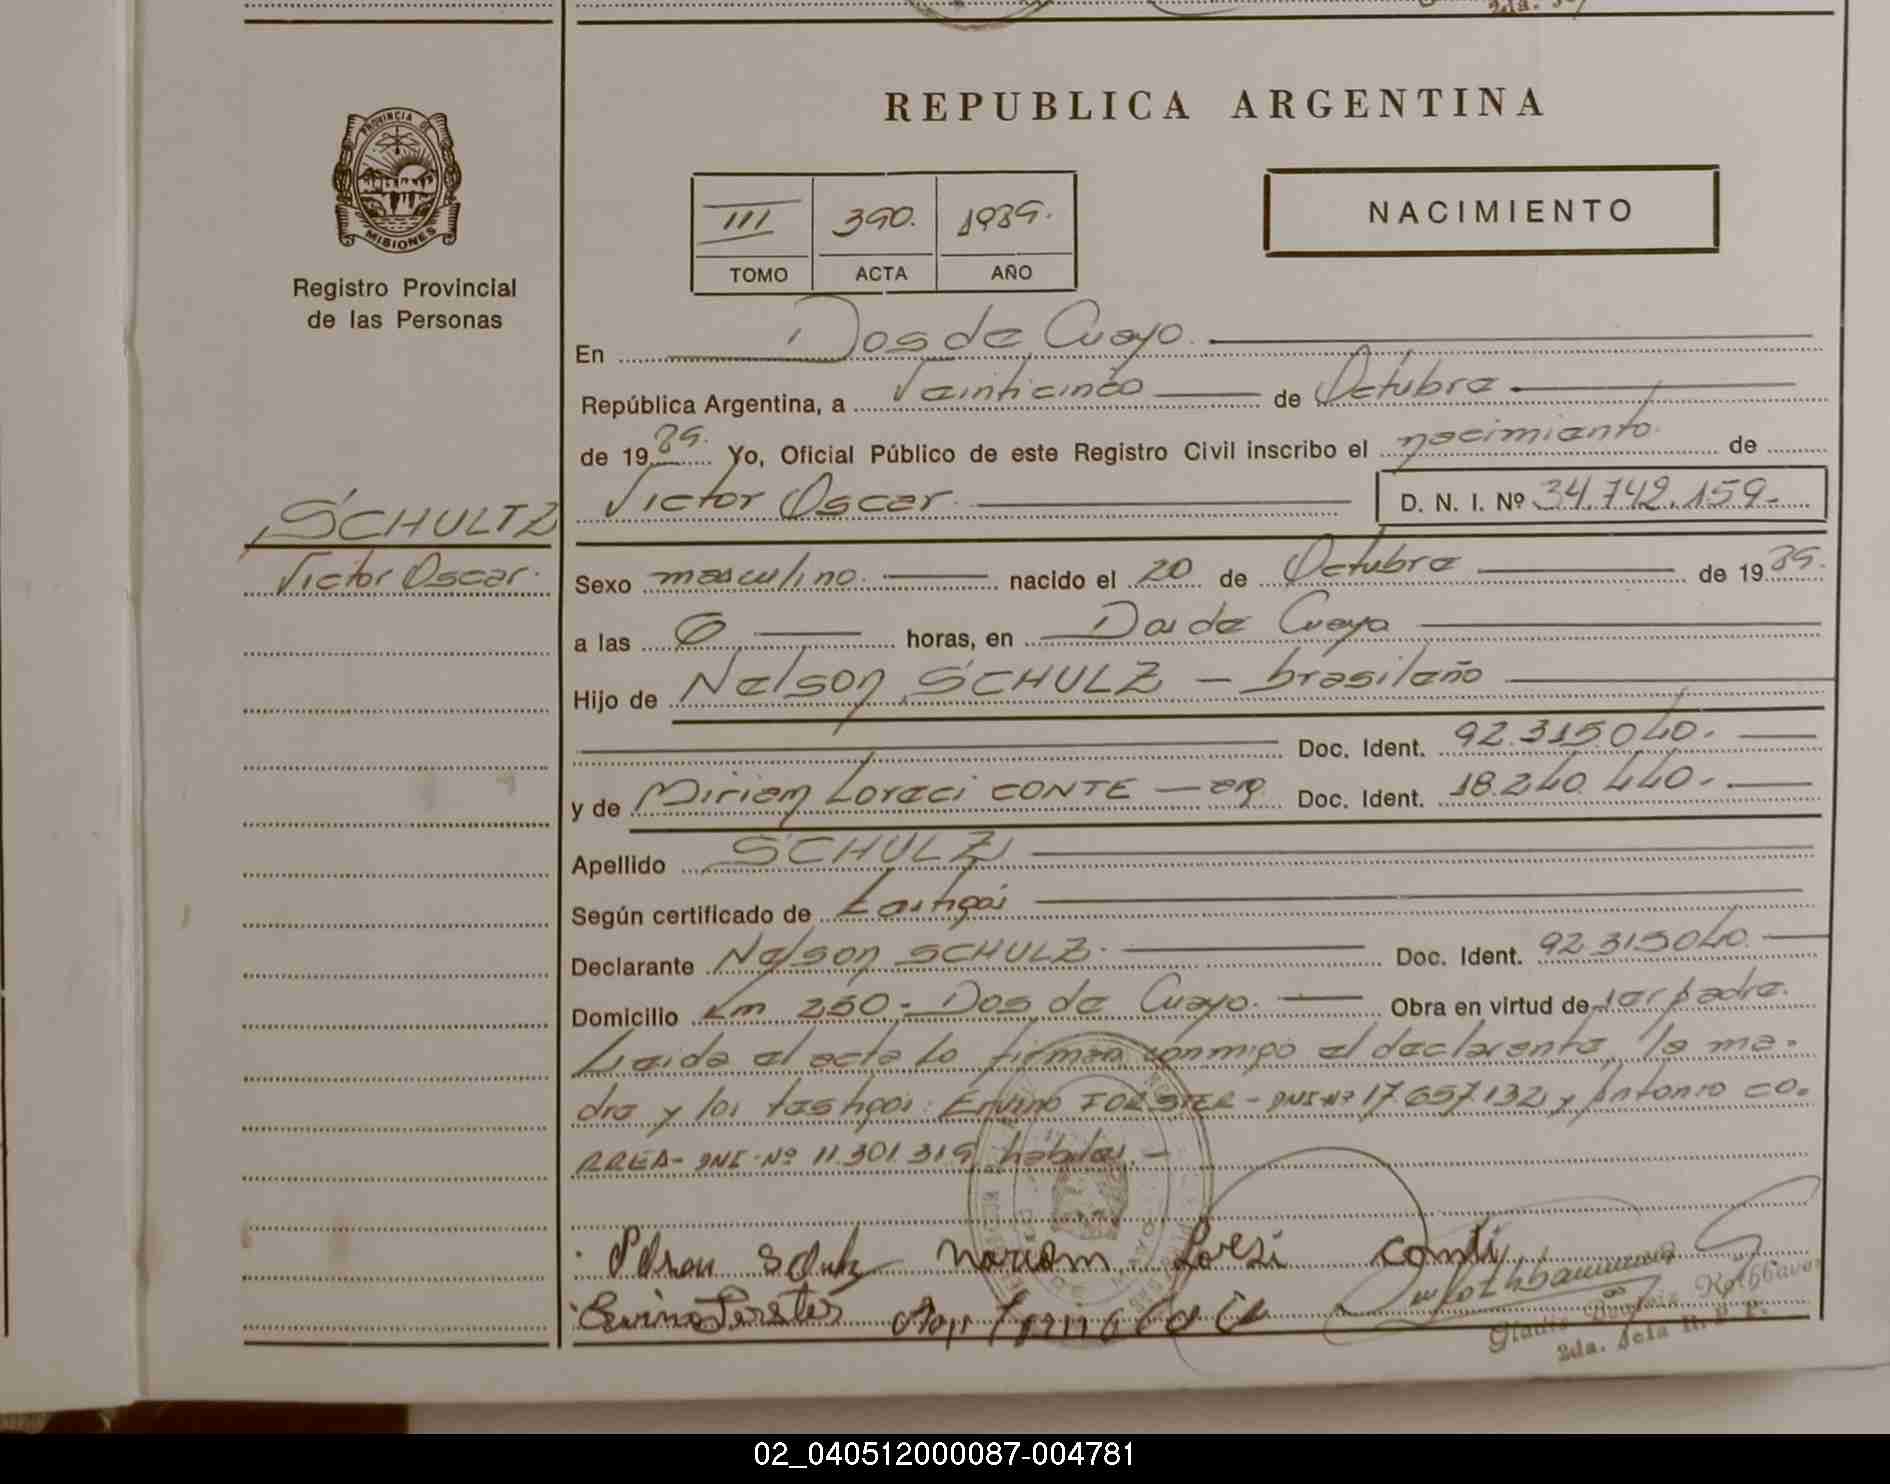 REPUBLICA ARGENTINA
PROVINCIA DE
MISIONES
Registro Provincial
de las Personas
NACIMIENTO
III 390. 1989.
TOMO ACTA AÑO
En Dos de Cuayo.
República Argentina, a Veinticinco de Octubre
de 1989. Yo, Oficial Público de este Registro Civil inscribo el nacimiento de
Victor Oscar. D. N. I. Nº 34.742.159-
SCHULTZ
Victor Oscar.
Sexo masculino. nacido el 20 de Octubre de 1989.
a las 6 horas, en Dos de Cuayo
Hijo de Nelson SCHULZ - brasileño
Doc. Ident. 92.315.040.
y de Miriam Loreci CONTE - arg. Doc. Ident. 18.240.440.
Apellido SCHULZ
Según certificado de testigos
Declarante Nelson SCHULZ. Doc. Ident. 92.315.040.
Domicilio Km 250 - Dos de Cuayo. Obra en virtud de ser padre.
Leida el acta lo firman conmigo el declarante, la ma-
dre y los testigos: Ervino FORSTER - DNI-Nº 17.657.132 y Antonio CO-
RREA - DNI-Nº 11.301.319 habiles.-
Ervino Forster
Gladis Rothbauer
2da. Jefa R. P. P.
02_040512000087-004781